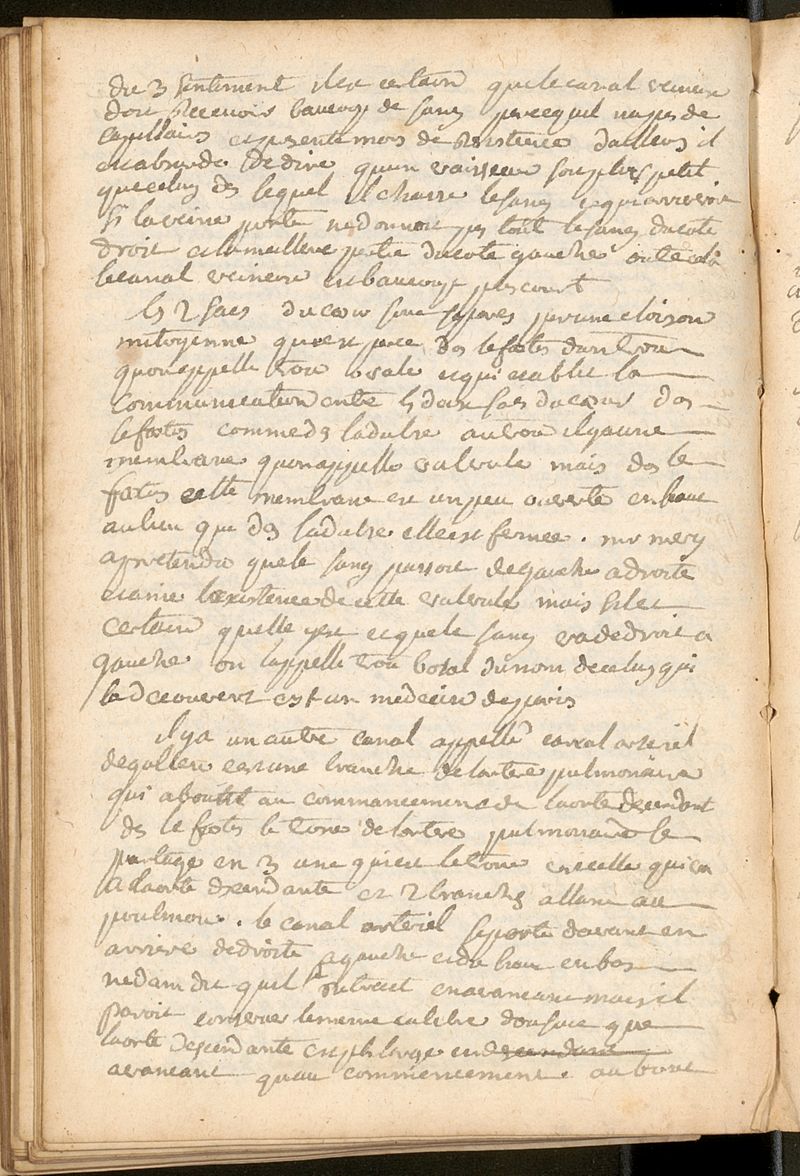 du 3 sentiment il est certain que le canal veineux
doit recevoir baucoup de sang parcequil na pas de
capillaires et presente mois de resistence dailleurs il
est absurde de dire quun vaisseau soit plus petit
que celuy ds lequel il chasse le sang ce qui arriveroit
si la veine porte ne donnoit pas tout le sang du coté
droit et la meilleure partie du coté gauche outre cela
le canal veineux est baucoup plus court
ls 2 sacs du cœur sont separés par une cloison
mitoyenne qui est percé ds le fœtus dun trou
quon appelle trou ovale et qui etablit la
communication entre ls deux sacs du cœur ds
le fœtus comme ds ladulte au trou il y a une
membrane quon appelle valvule mais ds le
fœtus cette membrane est un peu ouverte en haut
au lieu que ds ladulte elle est fermée. mr mery
a pretendu que le sang passoit de gauche a droite
et a nié lexistence de cette valvule mais il est
certain quelle y est et que le sang va de droit a
gauche on lappelle trou botal du nom de celuy qui
la decouvert cest un medecin de paris
il y a un autre canal appellé canal arteriel
de gallien cest une branche de lartere pulmonaire
qui aboutit au commancement de laorte descendant
ds le fœtus le tronc de lartere pulmonaire se
partage en 3 une qui est le tronc et celle qui va
a laorte descendante et 2 branches allant au
poulmon. le canal arteriel se porte davant en
arriere de droite a gauche et du haut en bas
needam dit quil se retrecit en avancant mais il
paroit conserver le meme calibre
laorte descendante est plus large en
avancant quau commencement. au bout